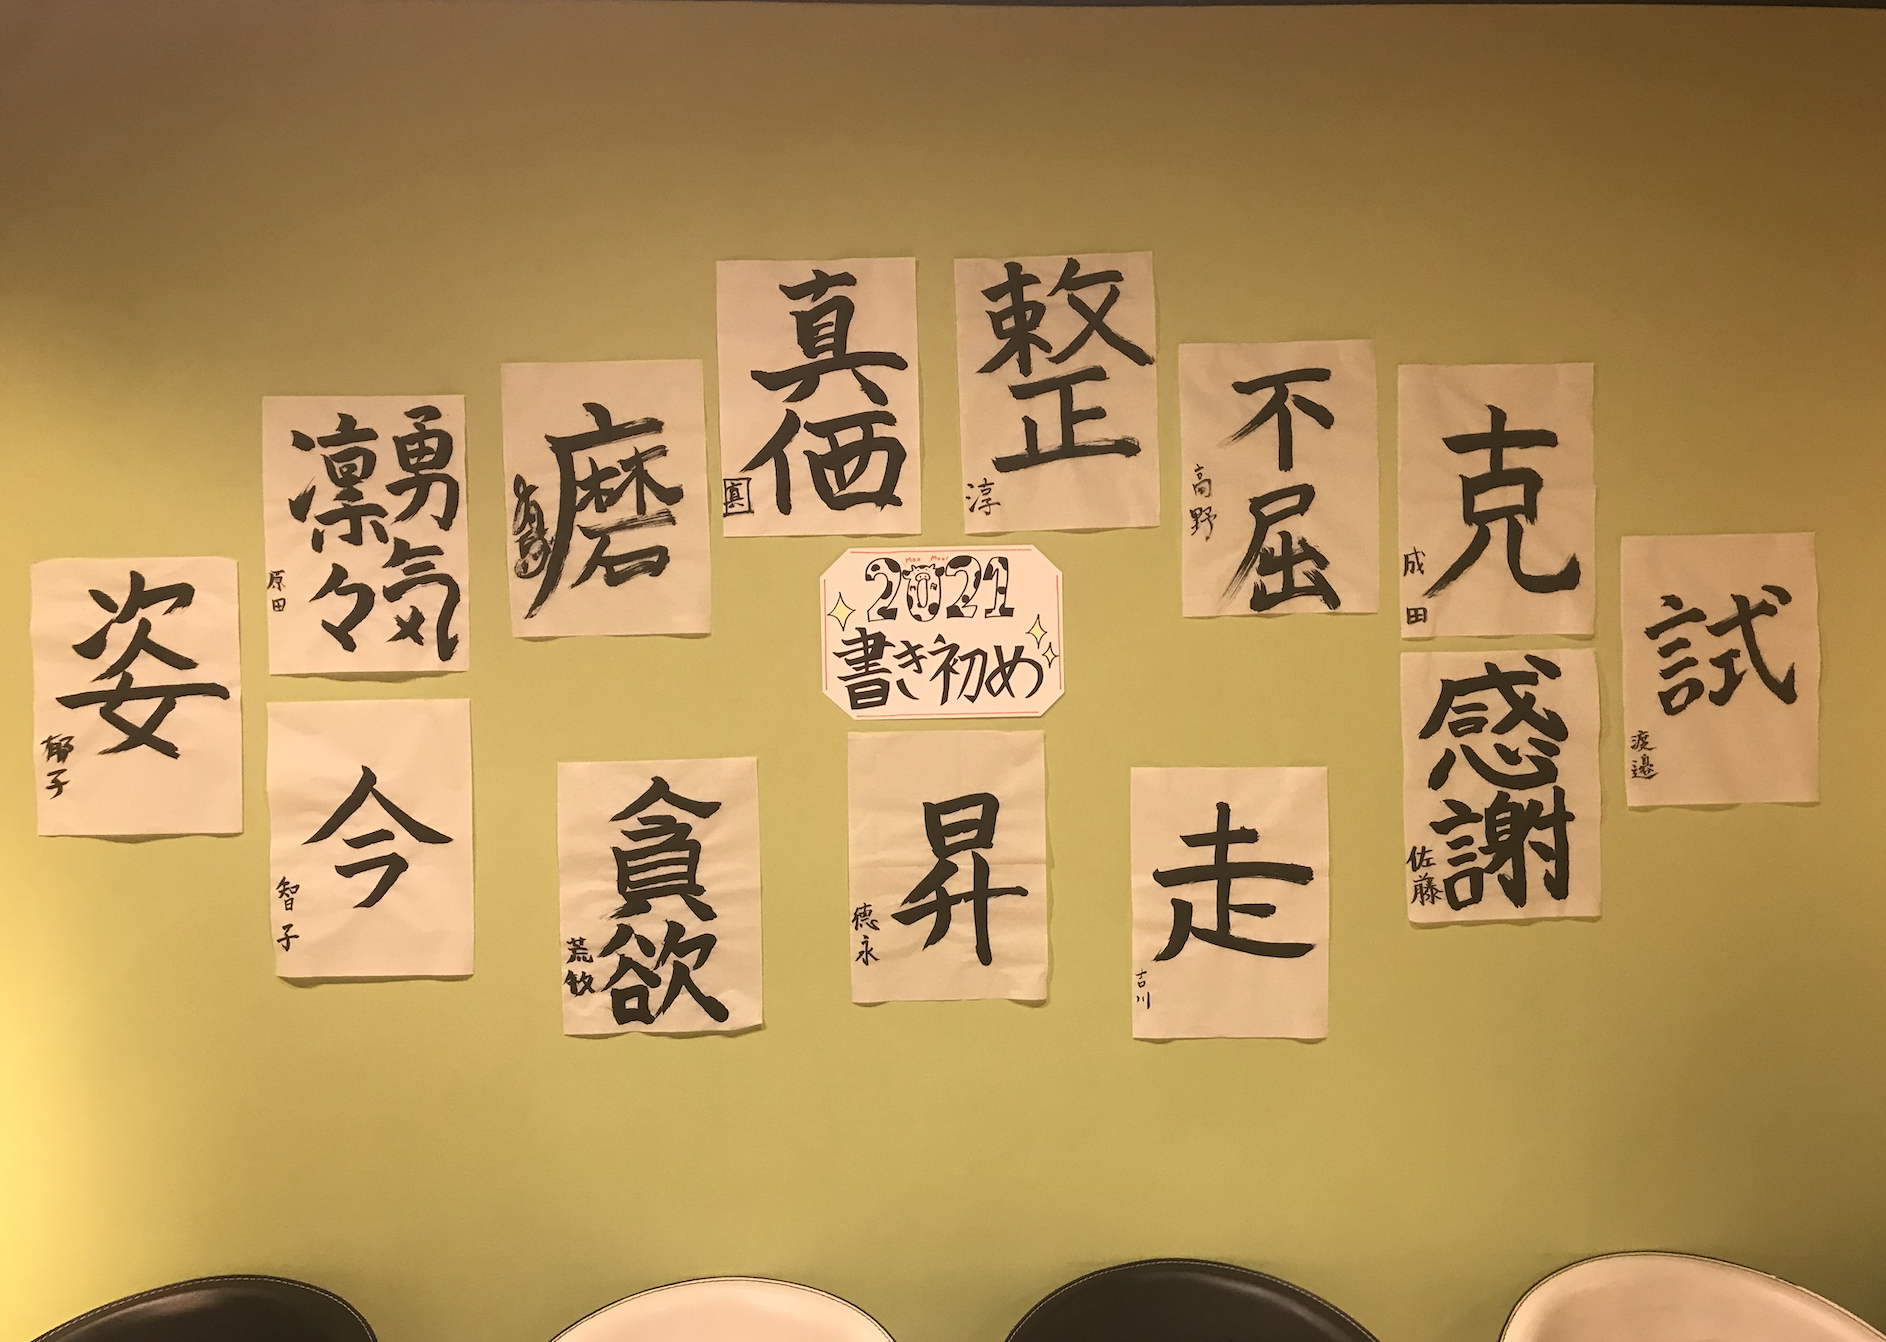 真価
真
整
淳
不屈
高野
克
成田
勇気
凛々
原田
磨
2021
書き初め
姿
郁子
試
渡邉
感謝
佐藤
今
智子
貪欲
荒牧
昇
徳永
走
吉川